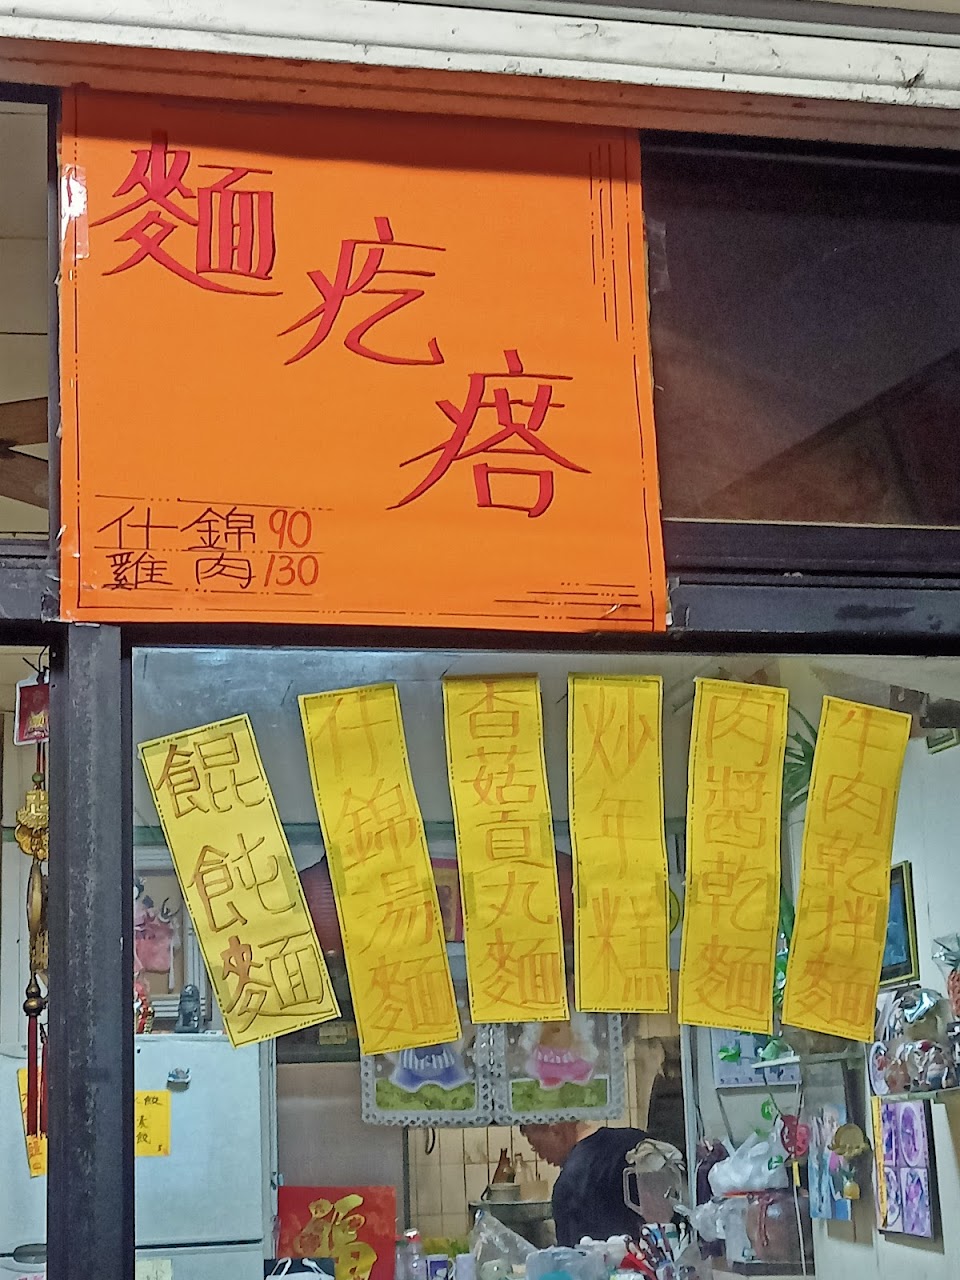 麵疙瘩
什錦90
雞肉130
餛飩麵
什錦湯麵
香菇貢丸麵
炒年糕
肉醬乾麵
牛肉乾拌麵
福